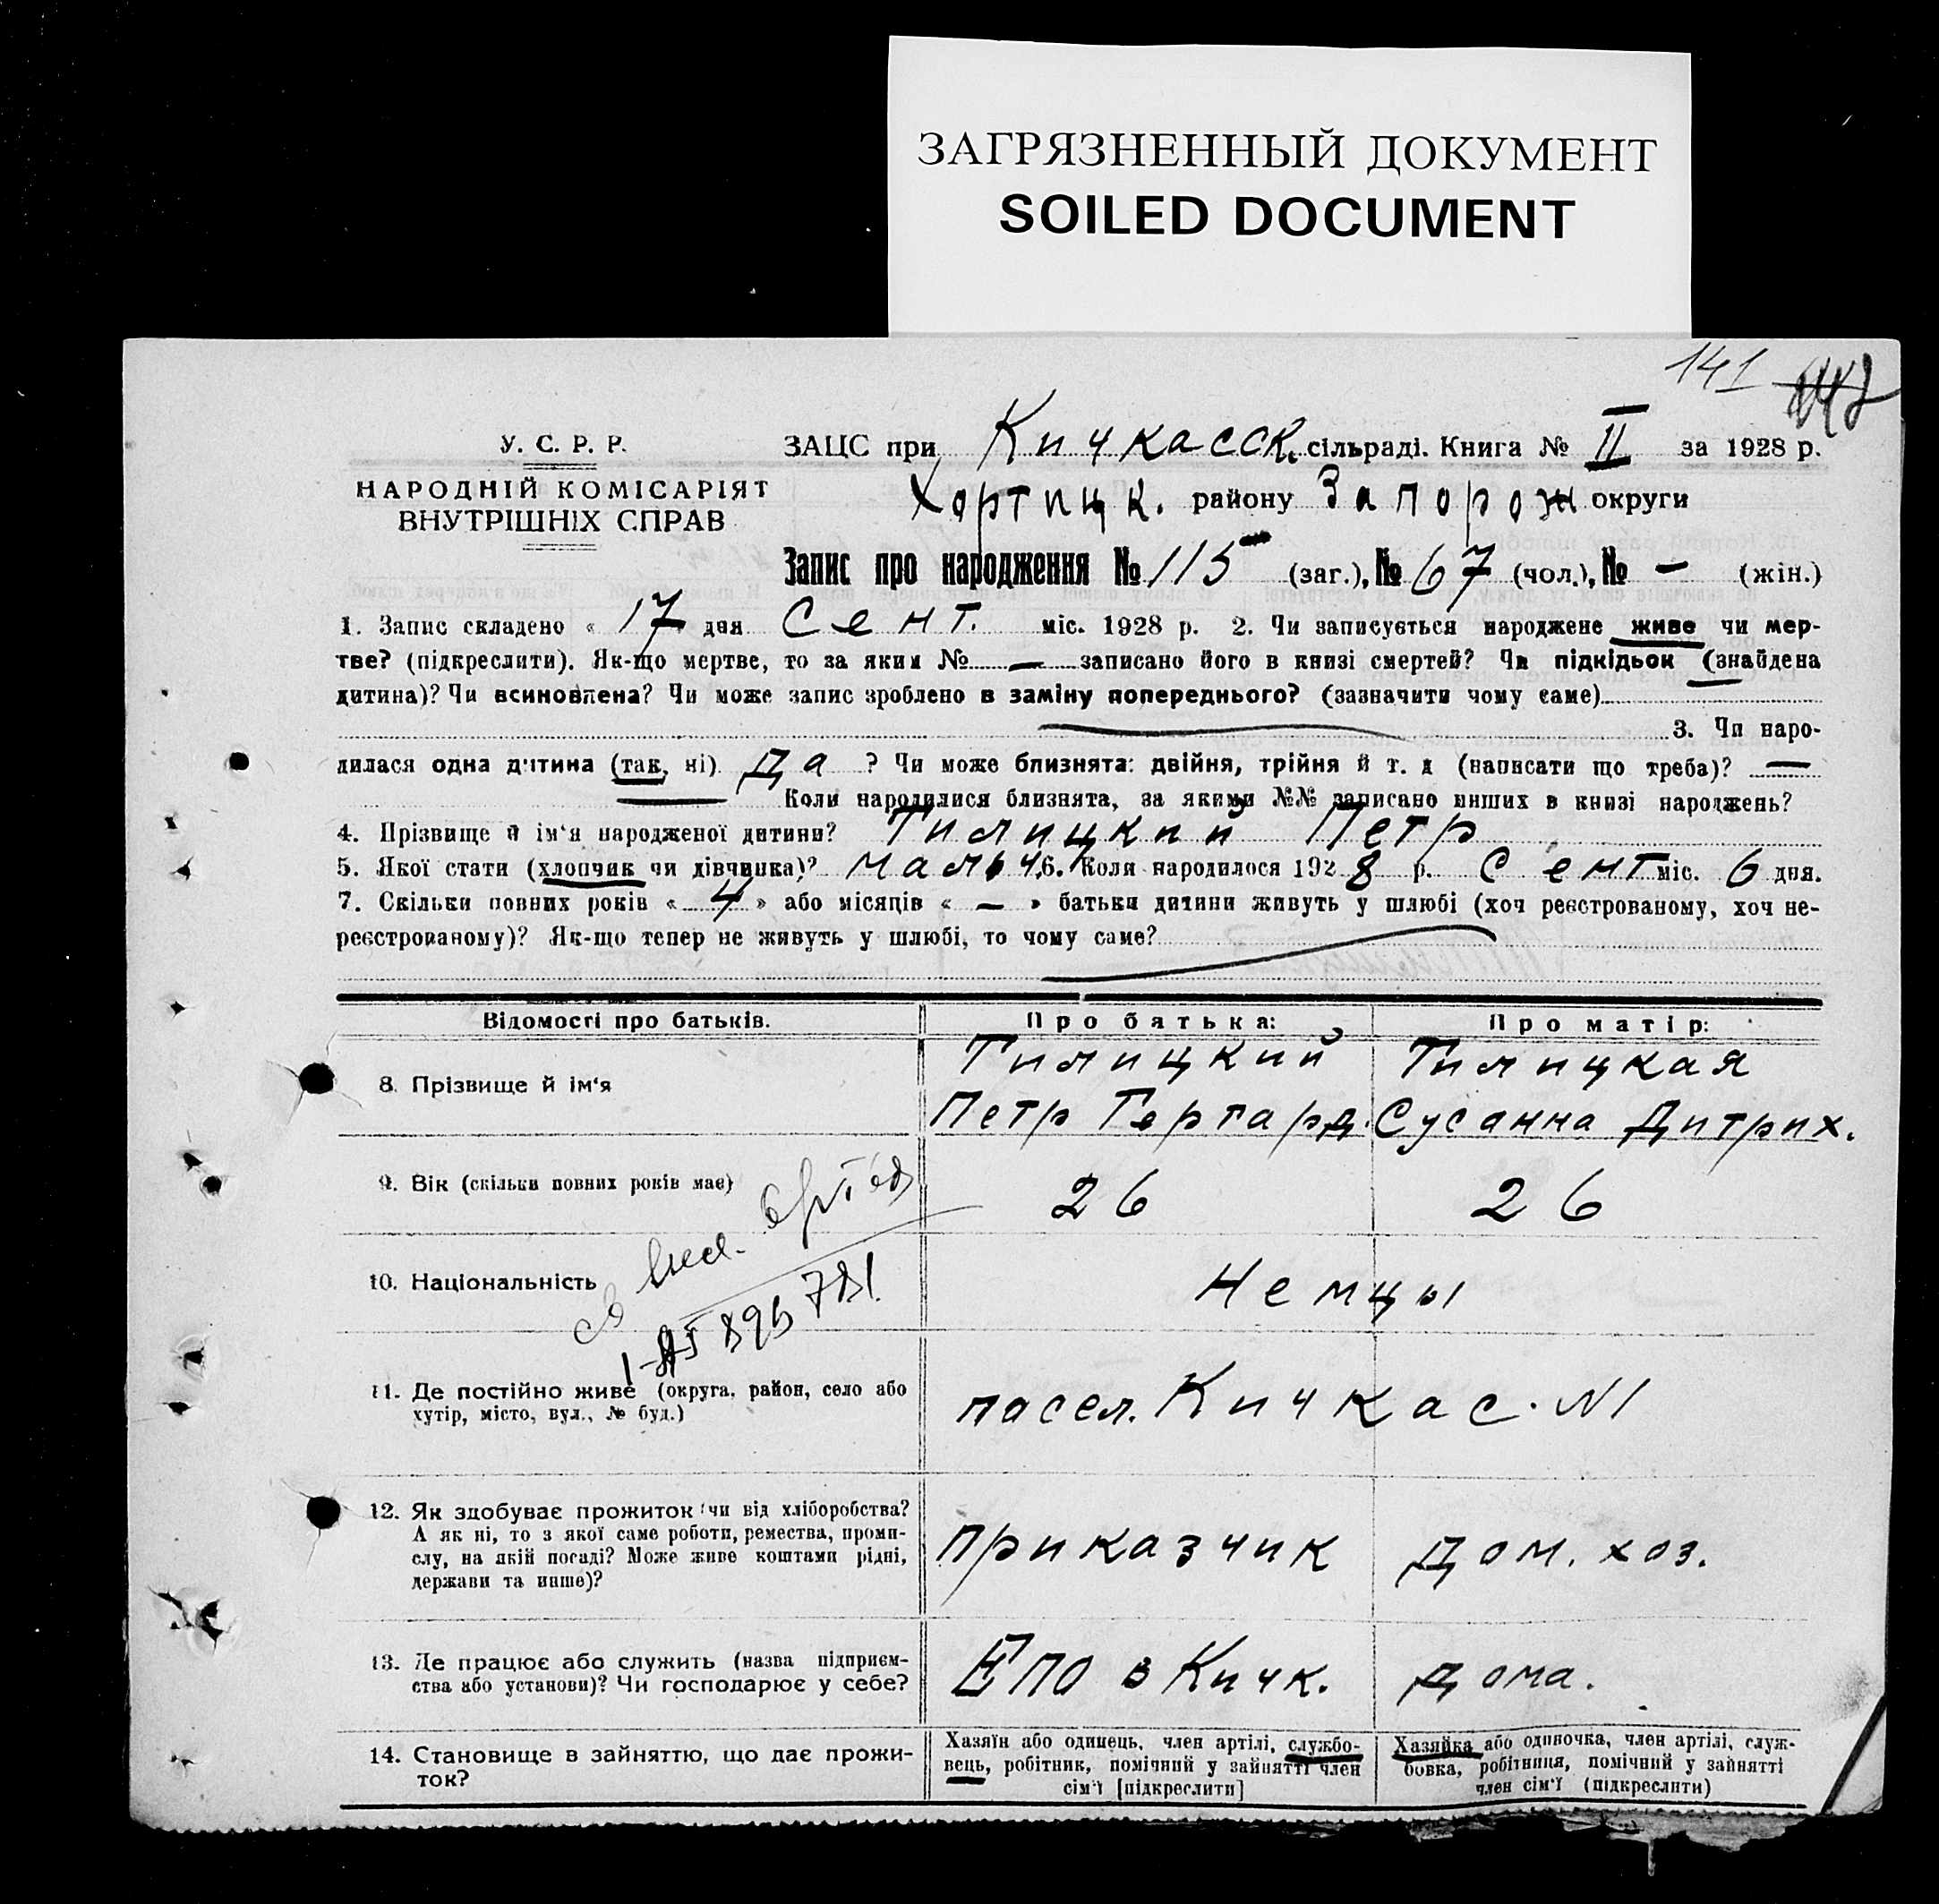 ЗАГРЯЗНЕННЫЙ ДОКУМЕНТ
SOILED DOCUMENT
141
У. С. Р. Р.
НАРОДНІЙ КОМІСАРІЯТ
ВНУТРІШНІХ СПРАВ
ЗАЦС при Кичкасск. сільраді. Книга № II за 1928 р.
Хортицк. району Запорож округи
Запис про народження № 115 (заг.), № 67 (чол.), № — (жін.)
1. Запис складено « 17 » дня Сент. міс. 1928 р. 2. Чи записується народжене живе чи мер-
тве? (підкреслити). Як-що мертве, то за яким № — записано його в книзі смертей? Чи підкідьок (знайдена
дитина)? Чи всиновлена? Чи може запис зроблено в заміну попереднього? (зазначити чому саме)
3. Чи наро-
дилася одна дитина (так, ні) Да ? Чи може близнята: двійня, трійня й т. д (написати що треба)? —
Коли народилися близнята, за якими №№ записано инших в книзі народжень?
4. Прізвище й ім'я народженої дитини? Тилицкий Петр
5. Якої стати (хлопчик чи дівчинка)? мальч. 6. Коли народилося 1928 р. Сент міс. 6 дня.
7. Скільки повних років « 4 » або місяців « — » батьки дитини живуть у шлюбі (хоч реєстрованому, хоч не-
реєстрованому)? Як-що тепер не живуть у шлюбі, то чому саме?
Відомості про батьків.
Про батька:
Про матір:
8. Прізвище й ім'я
Тилицкий
Петр Гергард.
Тилицкая
Сусанна Дитрих.
9. Вік (скільки повних років має)
26
26
10. Національність
Немцы
11. Де постійно живе (округа, район, село або
хутір, місто, вул., № буд.)
посел. Кичкас. N1
12. Як здобуває прожиток (чи від хліборобства?
А як ні, то з якої саме роботи, ремества, проми-
слу, на якій посаді? Може живе коштами рідні,
держави та инше)?
приказчик
Дом. хоз.
13. Де працює або служить (назва підприєм-
ства або установи)? Чи господарює у себе?
ЕПО в Кичк.
Дома.
14. Становище в зайняттю, що дає прожи-
ток?
Хазяїн або одинець, член артілі, службо-
вець, робітник, помічний у зайнятті член
сім'ї [підкреслити]
Хазяйка або одиночка, член артілі, служ-
бовка, робітниця, помічний у зайнятті
член сім'ї (підкреслити)